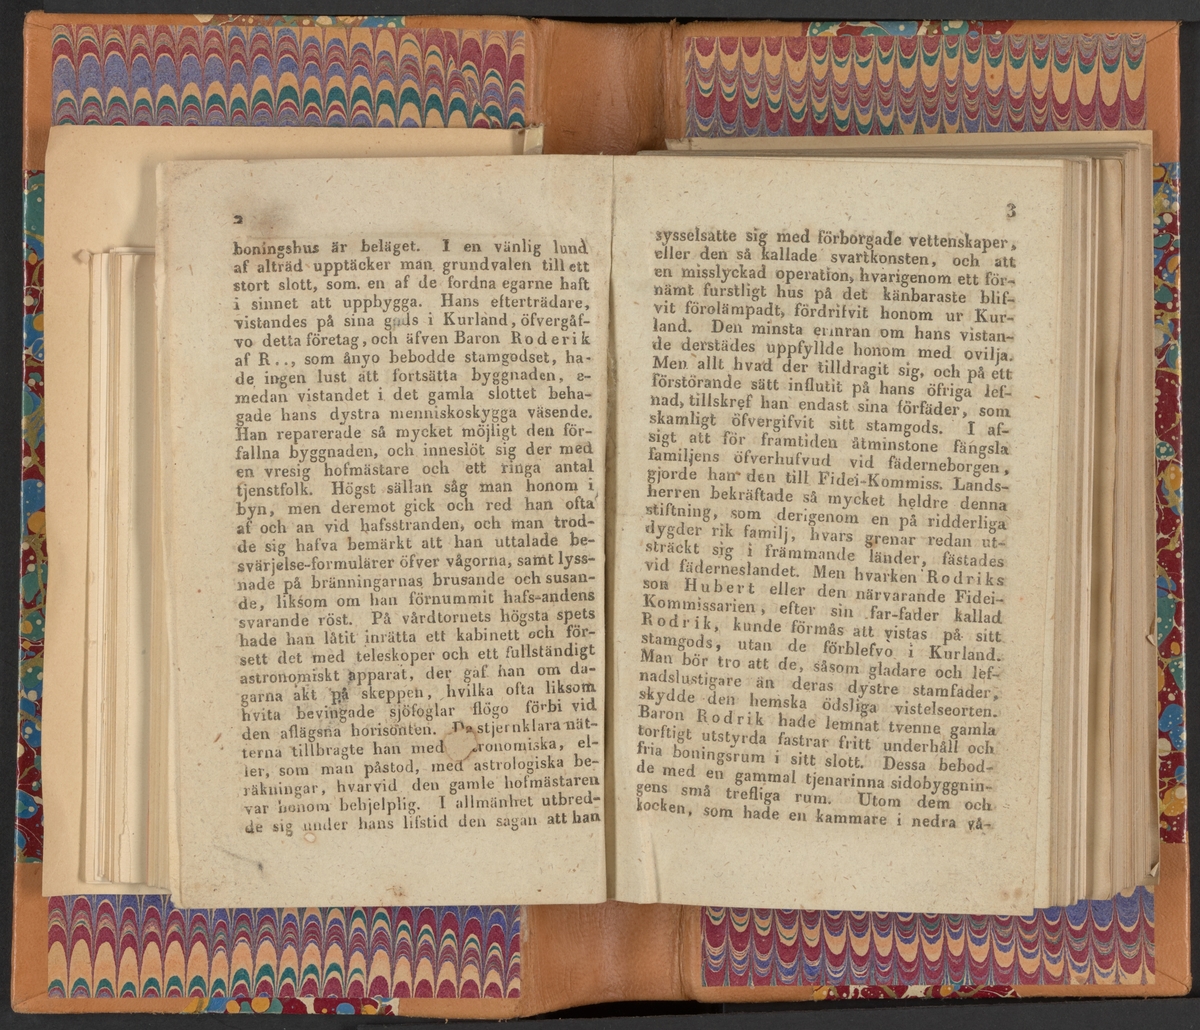 2
boningshus är beläget. I en vänlig lund
af alträd upptäcker man grundvalen till ett
stort slott, som. en af de fordna egarne haft
i sinnet att uppbygga. Hans efterträdare,
vistandes på sina gods i Kurland, öfvergåf-
vo detta företag, och äfven Baron Roderik
af R.., som ånyo bebodde stamgodset, ha-
de ingen lust att fortsätta byggnaden, e-
medan vistandet i det gamla slottet beha-
gade hans dystra menniskoskygga väsende.
Han reparerade så mycket möjligt den för-
fallna byggnaden, och inneslöt sig der med
en vresig hofmästare och ett ringa antal
tjenstfolk. Högst sällan såg man honom i
byn, men deremot gick och red han ofta
af och an vid hafsstranden, och man trod-
de sig hafva bemärkt att han uttalade be-
svärjelse-formulärer öfver vågorna, samt lyss-
nade på bränningarnas brusande och susan-
de, liksom om han förnummit hafs-andens
svarande röst. På vårdtornets högsta spets
hade han låtit inrätta ett kabinett och för-
sett det med teleskoper och ett fullständigt
astronomiskt apparat, der gaf han om da-
garna akt på skeppen, hvilka ofta liksom
hvita bevingade sjöfoglar flögo förbi vid
den aflägsna horisonten. De stjernklara nät-
terna tillbragte han med ronomiska, el-
ler, som man påstod, med astrologiska be-
räkningar, hvarvid den gamle hofmästaren
var honom behjelplig. I allmänhet utbred-
de sig under hans lifstid den sagan att han
3
sysselsatte sig med förborgade vettenskaper,
eller den så kallade svartkonsten, och att
en misslyckad operation, hvarigenom ett för-
nämt furstligt hus på det känbaraste blif-
vit förolämpadt, fördrifvit honom ur Kur-
land. Den minsta erinran om hans vistan-
de derstädes uppfyllde honom med ovilja.
Men allt hvad der tilldragit sig, och på ett
förstörande sätt influtit på hans öfriga lef-
nad, tillskref han endast sina förfäder, som
skamligt öfvergifvit sitt stamgods. I af-
sigt att för framtiden åtminstone fängsla
familjens öfverhufvud vid fäderneborgen,
gjorde han den till Fidei-Kommiss. Lands-
herren bekräftade så mycket heldre denna
stiftning, som derigenom en på ridderliga
dygder rik familj, hvars grenar redan ut-
sträckt sig i främmande länder, fästades
vid fäderneslandet. Men hvarken Rodriks
son Hubert eller den närvarande Fidei-
Kommissarien, efter sin far-fader kallad
Rodrik, kunde förmås att vistas på sitt
stamgods, utan de förblefvo i Kurland.
Man bör tro att de, såsom gladare och lef-
nadslustigare än deras dystre stamfader,
skydde den hemska ödsliga vistelseorten.
Baron Rodrik hade lemnat tvenne gamla
torftigt utstyrda fastrar fritt underhåll och
fria boningsrum i sitt slott. Dessa bebod-
de med en gammal tjenarinna sidobyggnin-
gens små trefliga rum. Utom dem och
kocken, som hade en kammare i nedra vå-